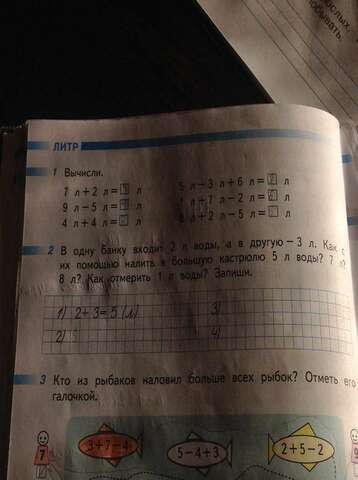 ЛИТР
1 Вычисли.
7 л+2 л= л 5 л−3 л+6 л= л
9 л−5 л= л л+7 л−2 л= л
4 л+4 л= л 8 л+2 л−5 л= л
2 В одну банку входит 2 л воды, а в другую − 3 л. Как с
их помощью налить в большую кастрюлю 5 л воды? 7 л?
8 л? Как отмерить 1 л воды? Запиши.
1) 2+3=5 (л) 3)
2) 4)
3 Кто из рыбаков наловил больше всех рыбок? Отметь его
галочкой.
7 3+7−4 5−4+3 2+5−2 9